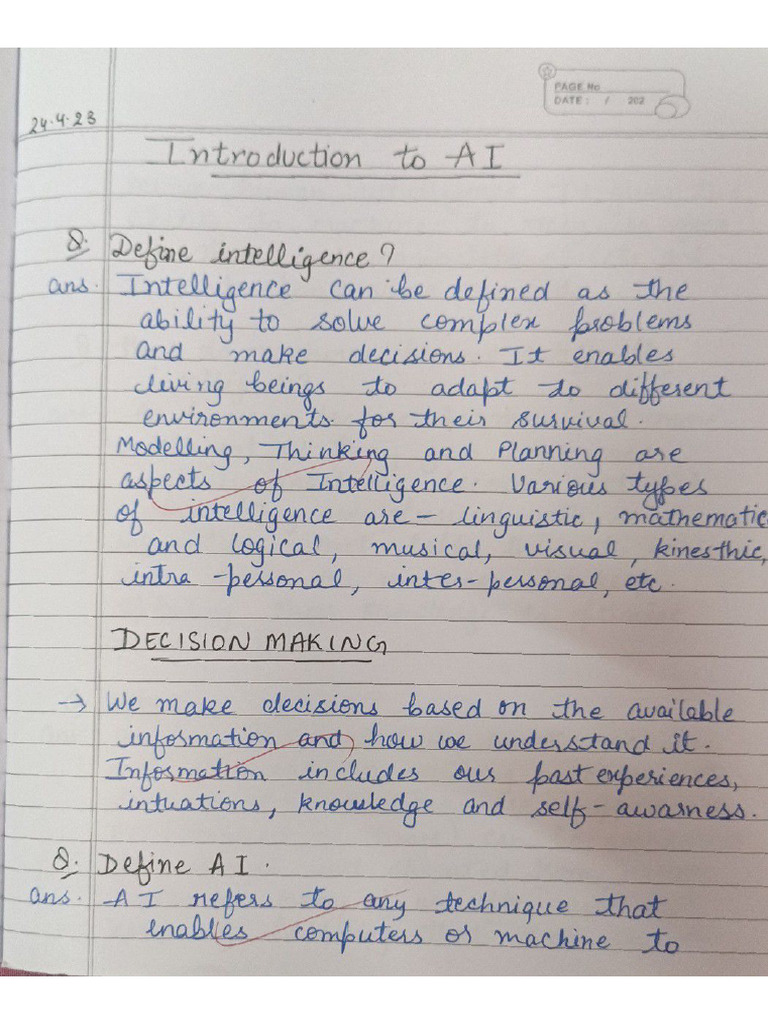 PAGE No.
DATE: / 202
24.4.23
Introduction to AI
Q. Define intelligence?
ans. Intelligence can be defined as the
ability to solve complex problems
and make decisions. It enables
living beings to adapt to different
environments for their survival.
Modelling, Thinking and Planning are
aspects of Intelligence. Various types
of intelligence are - linguistic, mathematic
and logical, musical, visual, kinesthic,
intra-personal, inter-personal, etc.
DECISION MAKING
→ We make decisions based on the available
information and how we understand it.
Information includes our past experiences,
intuations, knowledge and self-awarness.
Q. Define AI.
ans. AI refers to any technique that
enables computers or machine to